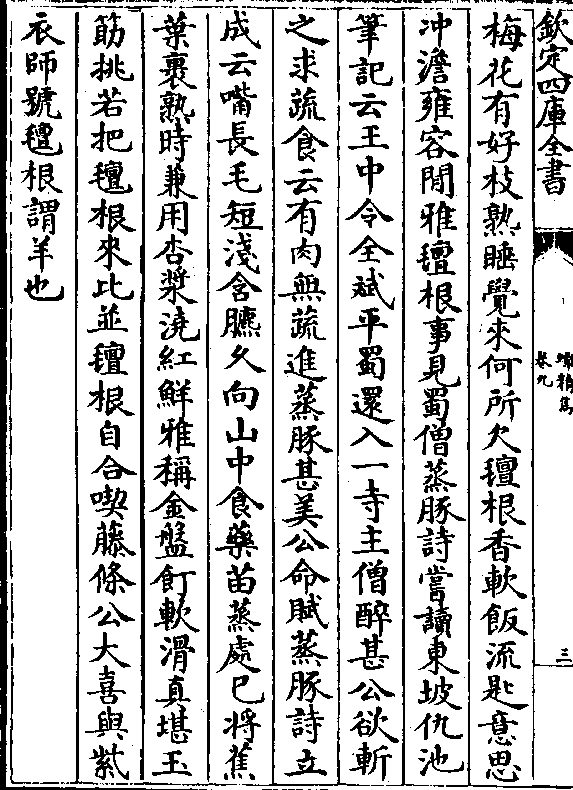 欽定四庫全書
卷九
三
梅花有好枝熟睡覺來何所欠氊根香軟飯流匙意思
冲澹雍容閒雅氊根事見蜀僧蒸豚詩嘗讀東坡仇池
筆記云王中令全斌平蜀還入一寺主僧醉甚公欲斬
之求蔬食云有肉無蔬進蒸豚甚美公命賦蒸豚詩立
成云嘴長毛短淺含臕久向山中食藥苗蒸處已將蕉
葉裹熟時兼用杏漿澆紅鮮雅稱金盤飣軟滑真堪玉
筯挑若把氊根來比並氊根自合喫藤條公大喜與紫
衣師號氊根謂羊也